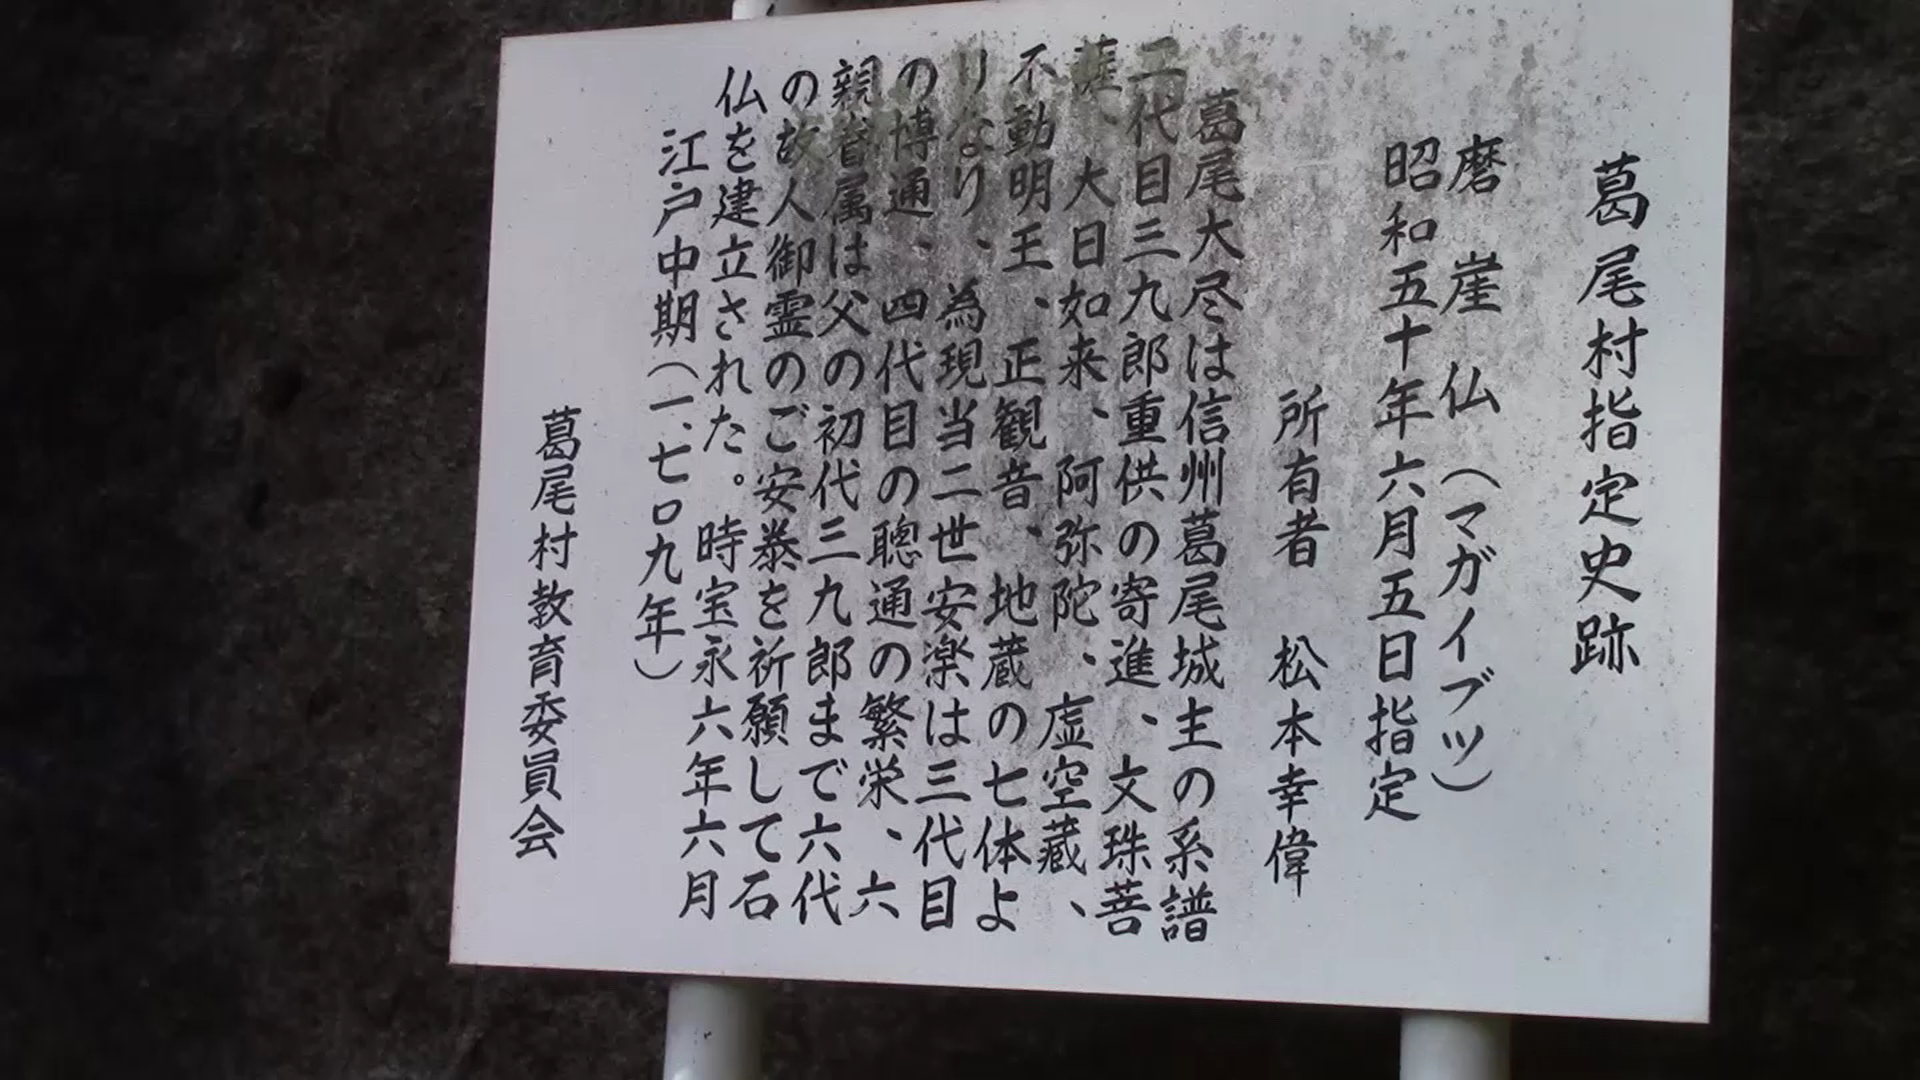 葛尾村指定史跡
磨崖仏（マガイブツ）
昭和五十年六月五日指定
所有者　松本幸偉
葛尾大尽は信州葛尾城主の系譜
二代目三九郎重供の寄進、文珠菩
薩、大日如来、阿弥陀、虚空蔵、
不動明王、正観音、地蔵の七体よ
りなり、為現当二世安楽は三代目
の博通、四代目の聰通の繁栄、六
親眷属は父の初代三九郎まで六代
の故人御霊のご安泰を祈願して石
仏を建立された。時宝永六年六月
江戸中期（一、七〇九年）
葛尾村教育委員会